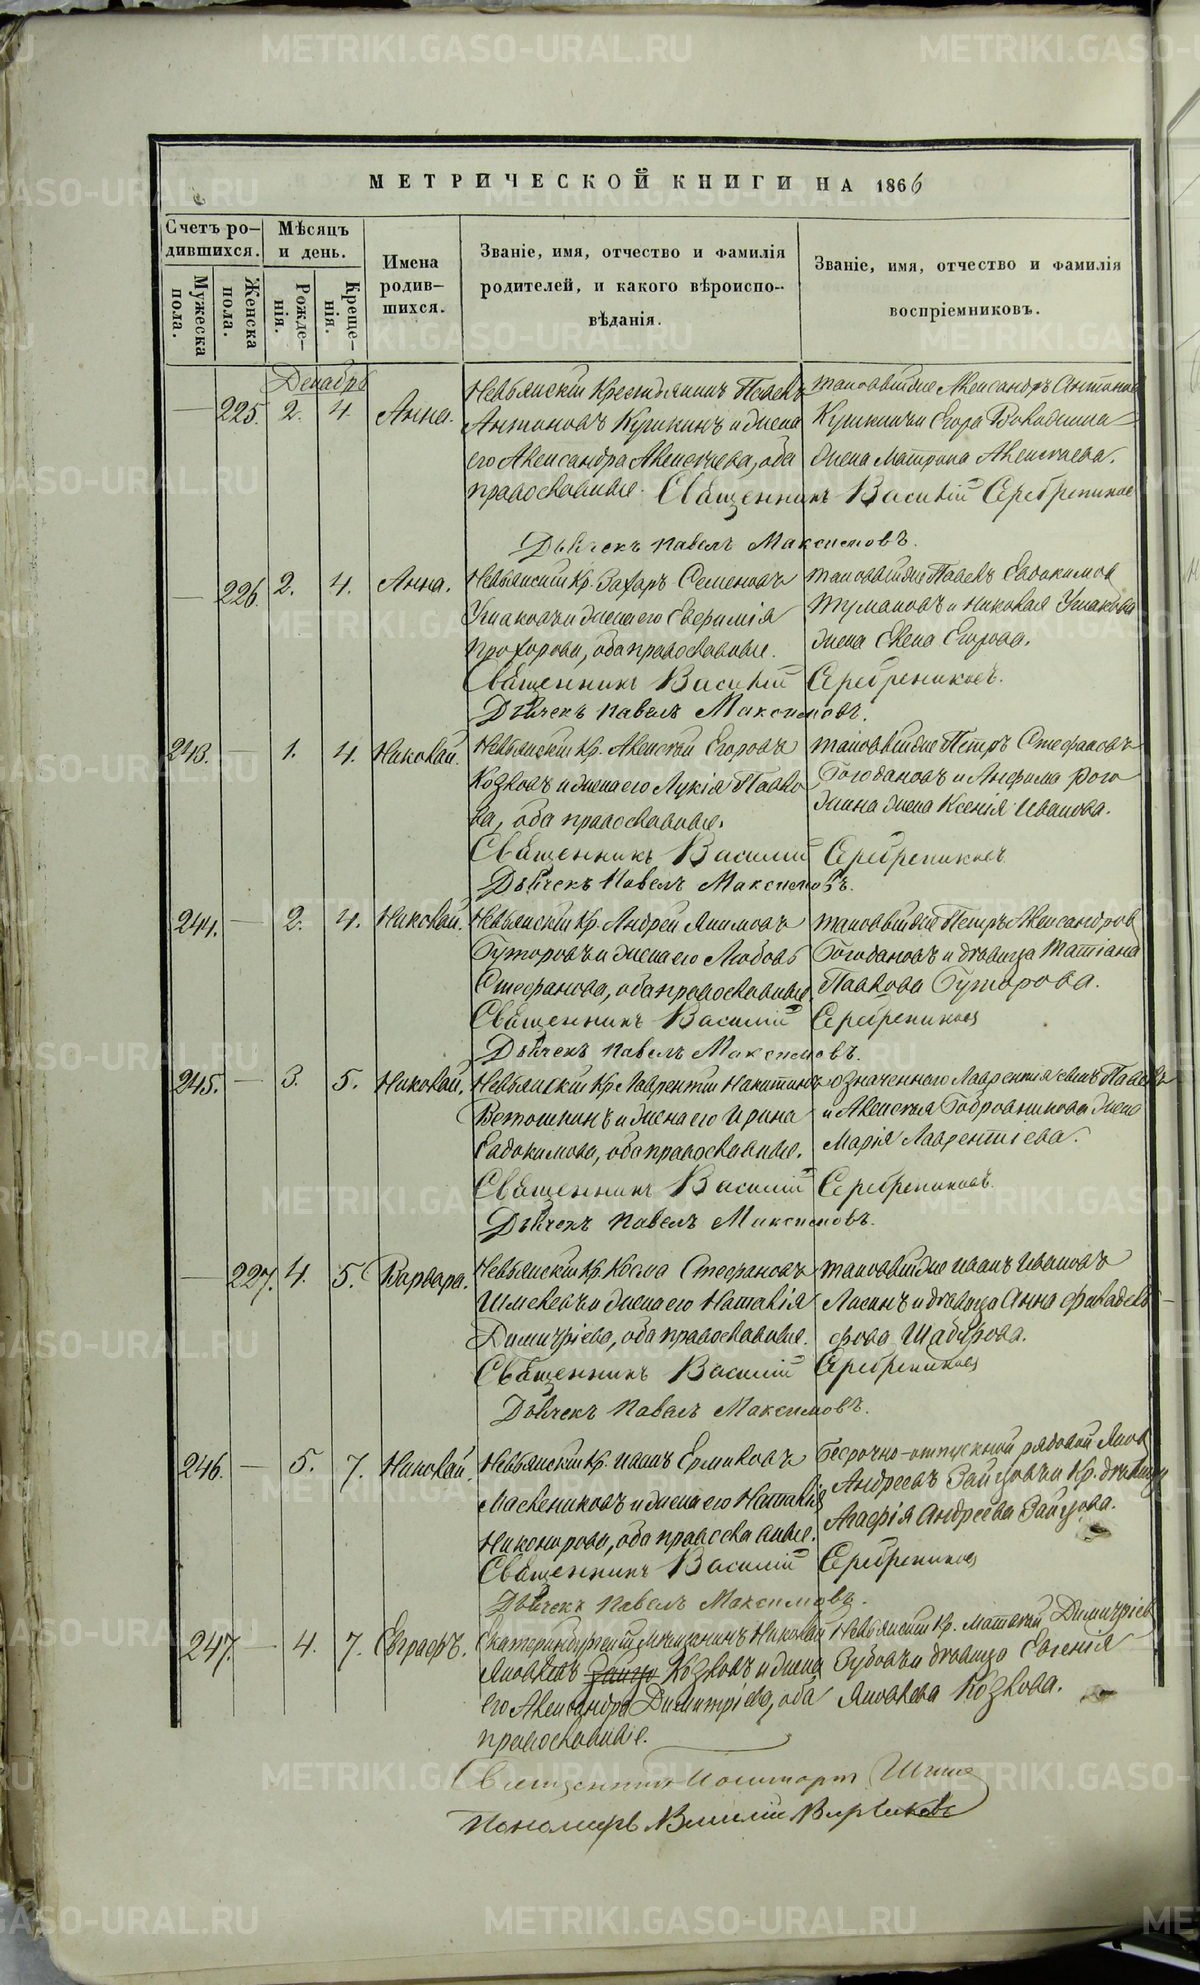 МЕТРИЧЕСКОЙ КНИГИ НА 1866
Счетъ ро-
дившихся.
Мѣсяцъ
и день.
Имена
родив-
шихся.
Званіе, имя, отчество и фамилія
родителей, и какого вѣроиспо-
вѣданія.
Званіе, имя, отчество и фамилія
воспріемниковъ.
Мужеска
пола.
Женска
пола.
Рожде-
нія.
Креще-
нія.
Декабрь
— 225. 2. 4. Анна.
Невьянскій Крестьянинъ Павелъ
Антоновъ Кушкинъ и жена
его Александра Алексѣева, оба
православные.
таковой же Александръ Антоновъ
Кушкинъ и Егора Володина
жена Матрона Алексѣева.
Священникъ Василій Серебрениковъ
Дьячекъ Павелъ Максимовъ.
— 226. 2. 4. Анна.
Невьянскій Кр. Захаръ Семеновъ
Ушаковъ и жена его Евфимія
Прохорова, оба православные.
таковой же Павелъ Евдокимовъ
Тумановъ и Николая Ушакова
жена Елена Егорова.
Священникъ Василій Серебрениковъ.
Дьячекъ Павелъ Максимовъ.
243. — 1. 4. Николай.
Невьянскій Кр. Алексѣй Егоровъ
Козловъ и жена его Лукія Павло
ва, оба православные.
таковой же Петръ Стефановъ
Богодановъ и Анфима Рого
жина жена Ксенія Иванова.
Священникъ Василій Серебрениковъ
Дьячекъ Павелъ Максимовъ.
244. — 2. 4. Николай.
Невьянскій Кр. Андрей Якимовъ
Гуторовъ и жена его Любовь
Стефанова, оба православные.
таковой же Петръ Александровъ
Богодановъ и дѣвица Татіана
Павлова Гуторова.
Священникъ Василій Серебрениковъ
Дьячекъ Павелъ Максимовъ.
245. — 3. 5. Николай.
Невьянскій Кр. Лаврентій Никитинъ
Ветошкинъ и жена его Ирина
Евдокимова, оба православные.
означеннаго Лаврентія сынъ Павелъ
и Алексѣя Бобровникова жена
Марія Лаврентіева.
Священникъ Василій Серебрениковъ.
Дьячекъ Павелъ Максимовъ.
— 227. 4. 5. Варвара.
Невьянскій Кр. Косма Стефановъ
Шмелевъ и жена его Наталія
Димитріева, оба православные.
таковой же Иванъ Ивановъ
Лапинъ и дѣвица Анна Филадель-
фова Шабурова.
Священникъ Василій Серебрениковъ
Дьячекъ Павелъ Максимовъ.
246. — 5. 7. Николай.
Невьянскій Кр. Иванъ Ермиловъ
Маслениковъ и жена его Наталія
Никонорова, оба православные.
безсрочно-отпускной рядовой Яковъ
Андреевъ Зайцовъ и Кр. дѣвица
Агафія Андреева Зайцова.
Священникъ Василій Серебрениковъ
Дьячекъ Павелъ Максимовъ.
247. — 4. 7. Евграфъ.
Екатеринбургскій Мѣщанинъ Николай
Яковлевъ Козловъ и жена
его Александра Димитріева, оба
православные.
Невьянскій Кр. Матвѣй Димитріевъ
Зубовъ и дѣвица Евгенія
Яковлева Козлова.
Священникъ
Пономарь Василій